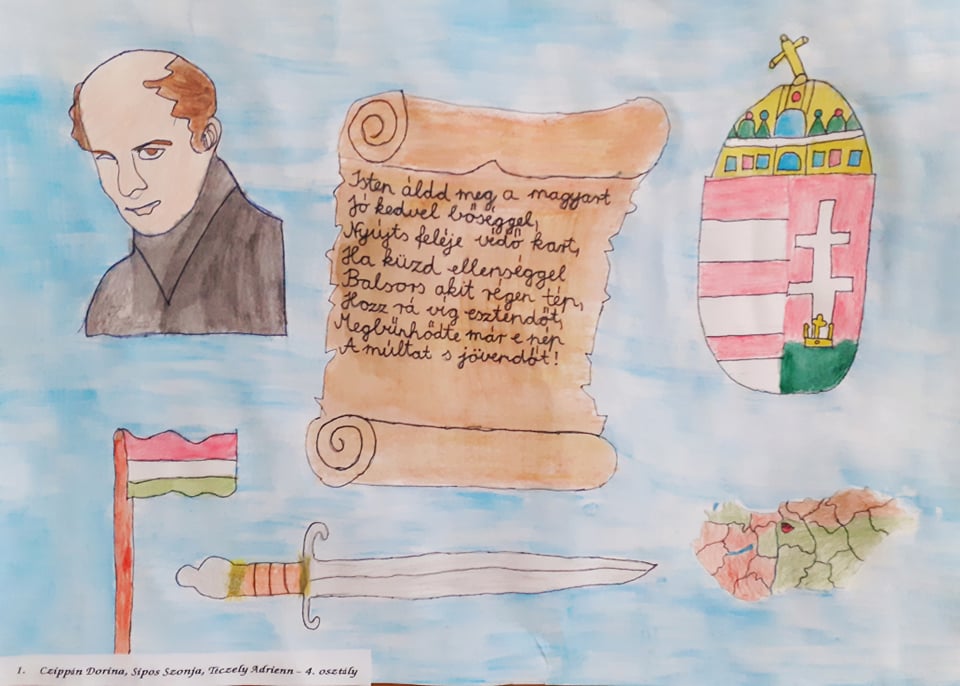 Isten áldd meg a magyart
Jó kedvel bőséggel,
Nyújts feléje védő kart,
Ha küzd ellenséggel
Balsors akit régen tép,
Hozz rá víg esztendőt,
Megbűnhődte már e nép
A múltat s jövendőt!
1. Czippin Dorina, Sipos Szonja, Ticzely Adrienn – 4. osztály